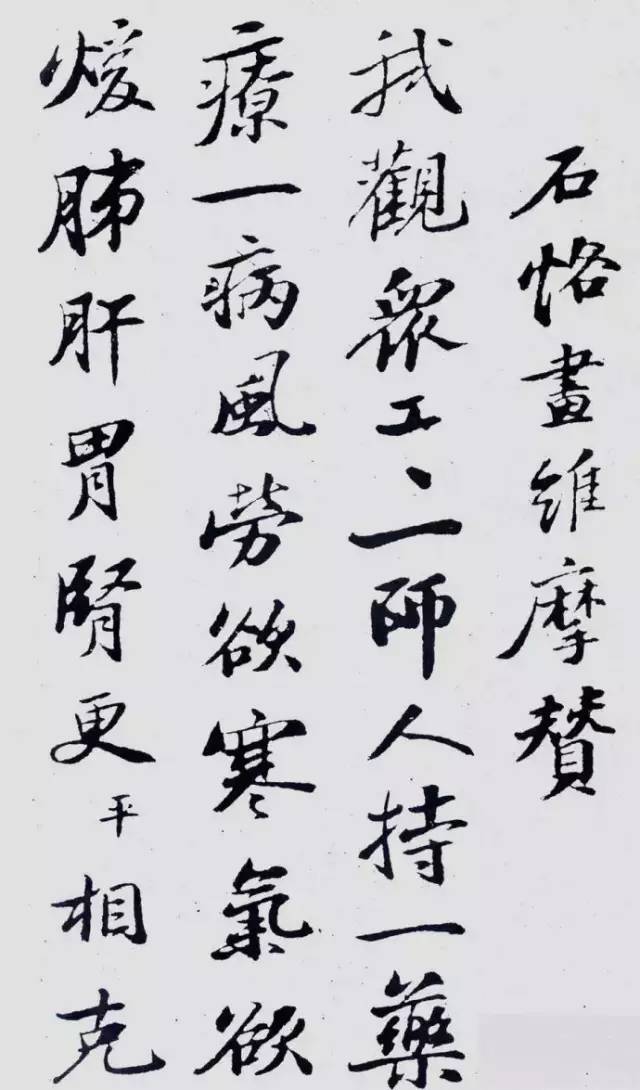 石恪畫維摩贊
我觀眾工〻一師人持一藥
療一病風勞欲寒氣欲
煖肺肝胃腎更平相克